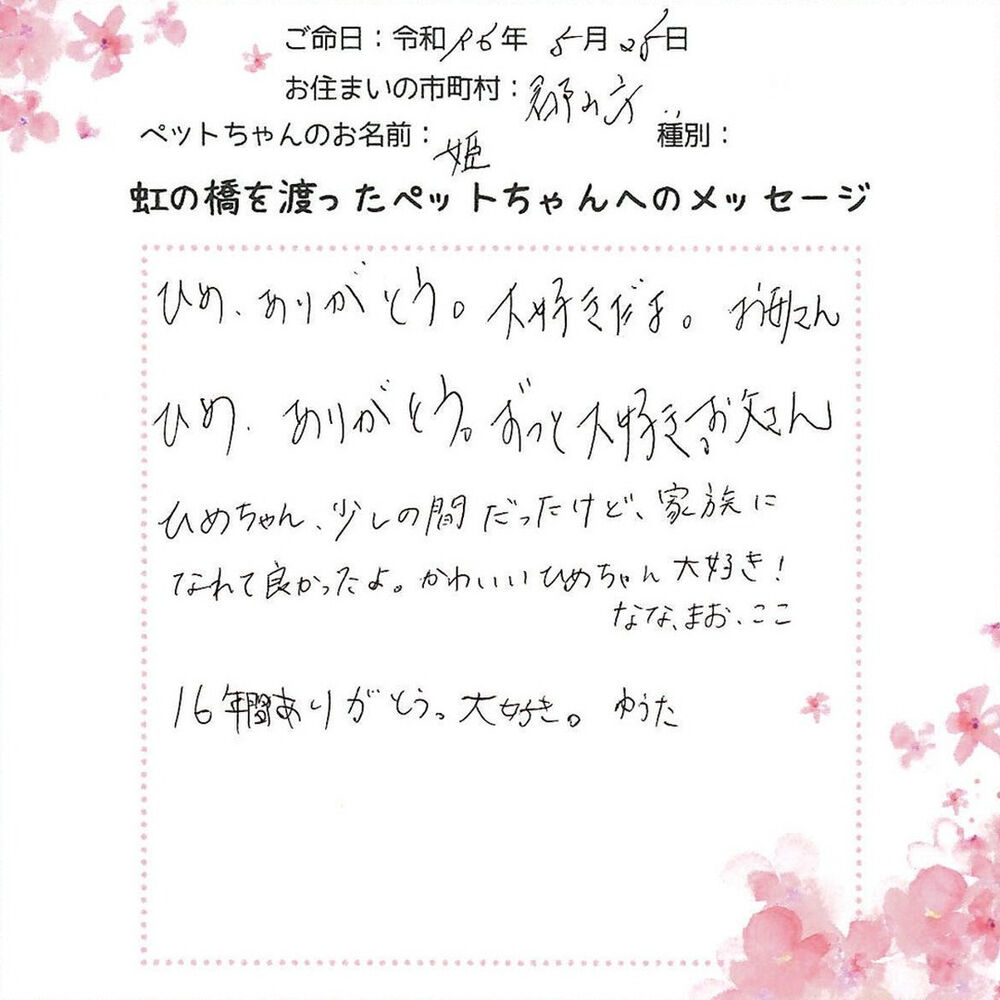 ご命日：令和 年 5月 28日
お住まいの市町村：郡山市
ペットちゃんのお名前：姫 種別：
虹の橋を渡ったペットちゃんへのメッセージ
ひめ、ありがとう。大好きだよ。 お母さん
ひめ、ありがとう。ずっと大好き。お父さん
ひめちゃん、少しの間だったけど、家族に
なれて良かったよ。かわいいひめちゃん大好き！
なな、まお、ここ
16年間ありがとう。大好き。 ゆうた